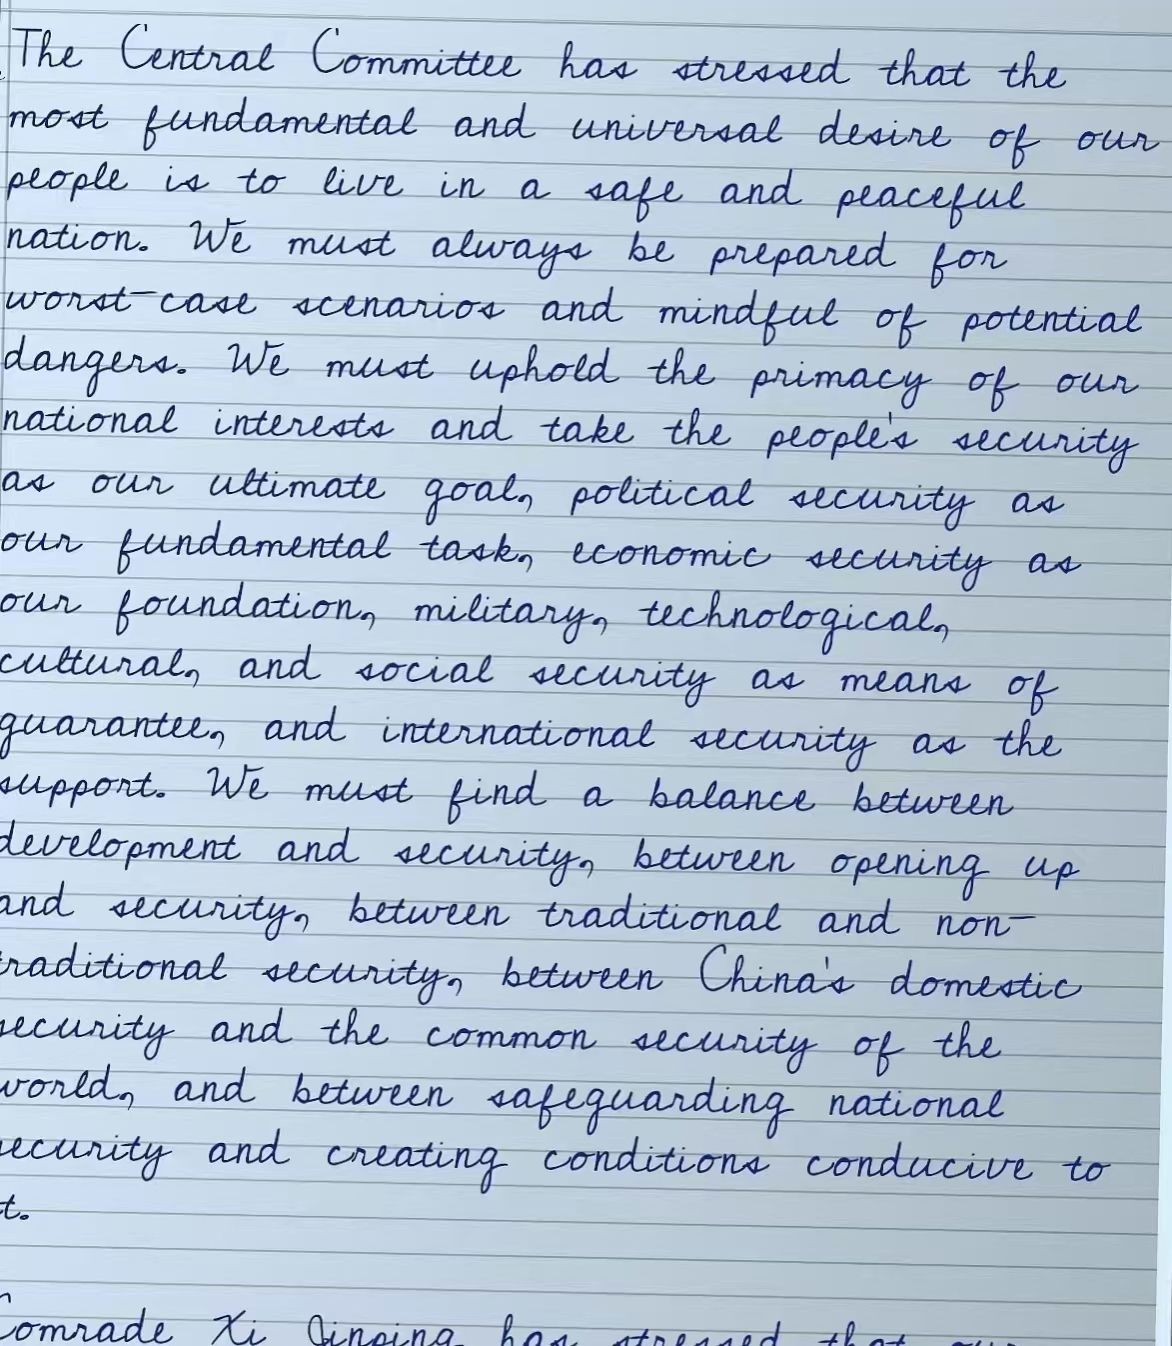 The Central Committee has stressed that the
most fundamental and universal desire of our
people is to live in a safe and peaceful
nation. We must always be prepared for
worst-case scenarios and mindful of potential
dangers. We must uphold the primacy of our
national interests and take the people's security
as our ultimate goal, political security as
our fundamental task, economic security as
our foundation, military, technological,
cultural, and social security as means of
guarantee, and international security as the
support. We must find a balance between
development and security, between opening up
and security, between traditional and non-
traditional security, between China's domestic
security and the common security of the
world, and between safeguarding national
security and creating conditions conducive to
t.
Comrade Xi Jinping has stressed that our